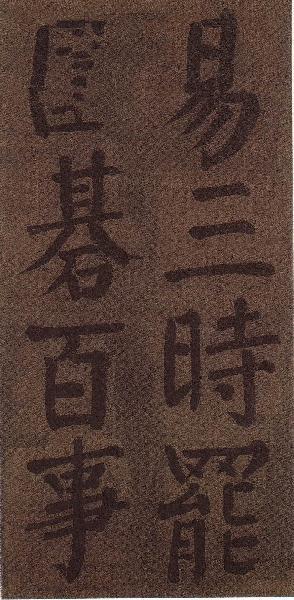 易三時罷
圍碁百事